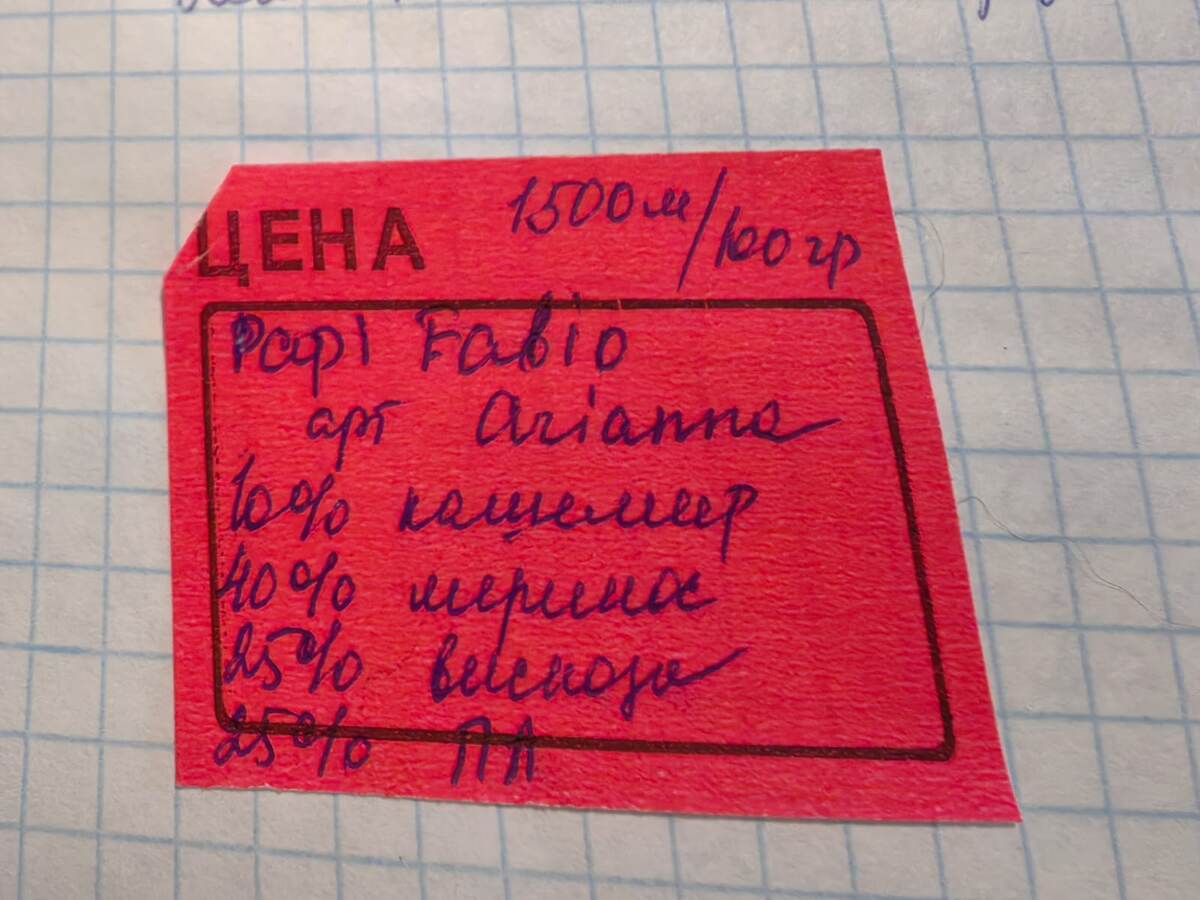 ЦЕНА 1500м/100гр
Papi Fabio
арт Arianna
10% кашемир
40% меринос
25% вискоза
25% ПА